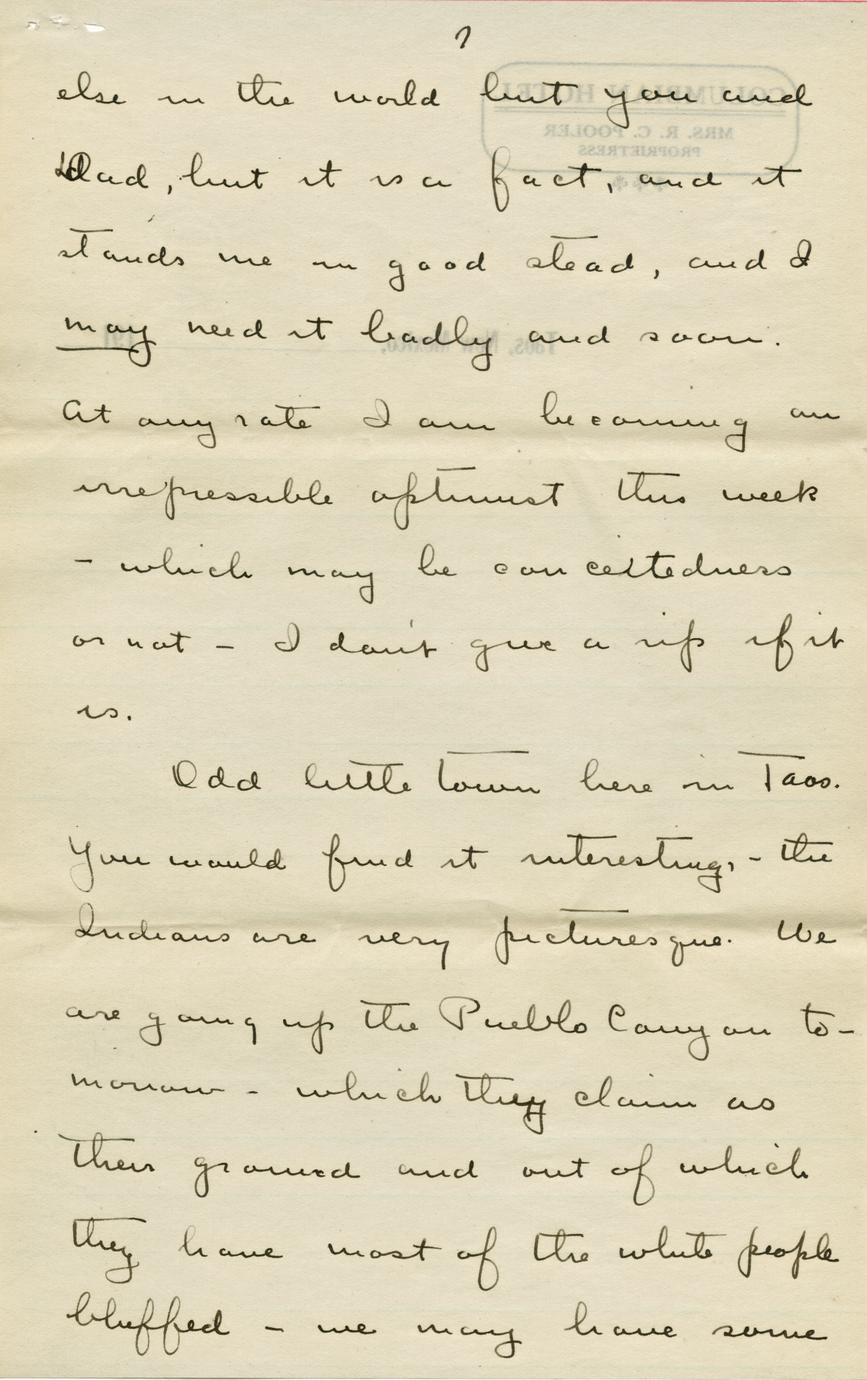 7
COLUMBIAN HOTEL
MRS. R. C. POOLER
PROPRIETRESS
else in the world but you and
Dad, but it is a fact, and it
stands me in good stead, and I
may need it badly and soon.
Taos, New Mexico, 191
At any rate I am becoming an
irrepressible optimist this week
- which may be conceitedness
or not - I don't give a rip if it
is.
Odd little town here in Taos.
You would find it interesting, - the
Indians are very picturesque. We
are going up the Pueblo Canyon to-
morrow - which they claim as
their ground and out of which
they have most of the white people
bluffed - we may have some